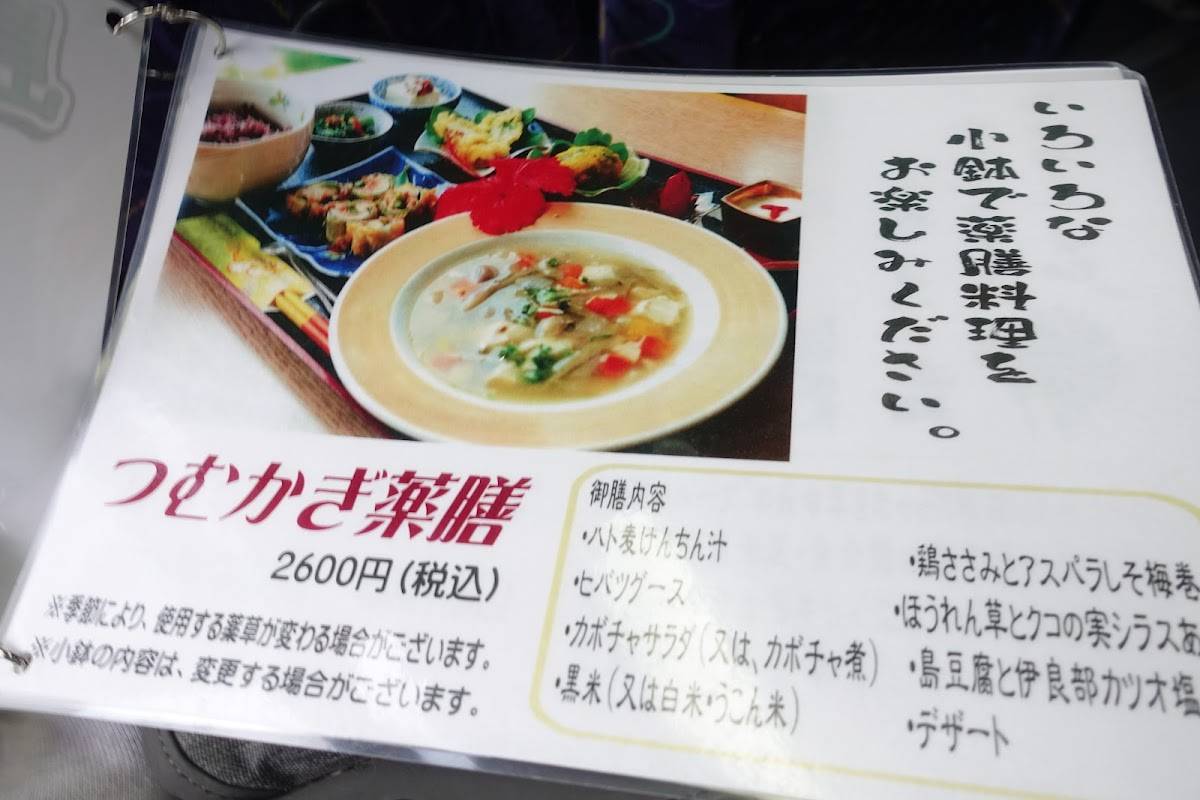 いろいろな
小鉢で薬膳料理を
お楽しみください。
つむかぎ薬膳
2600円(税込)
※季節により、使用する薬草が変わる場合がございます。
※小鉢の内容は、変更する場合がございます。
御膳内容
・ハト麦けんちん汁
・ヒバツグース
・カボチャサラダ(又は、カボチャ煮)
・黒米(又は白米・うこん米)
・鶏ささみとアスパラしそ梅巻
・ほうれん草とクコの実シラスあ
・島豆腐と伊良部カツオ塩
・デザート